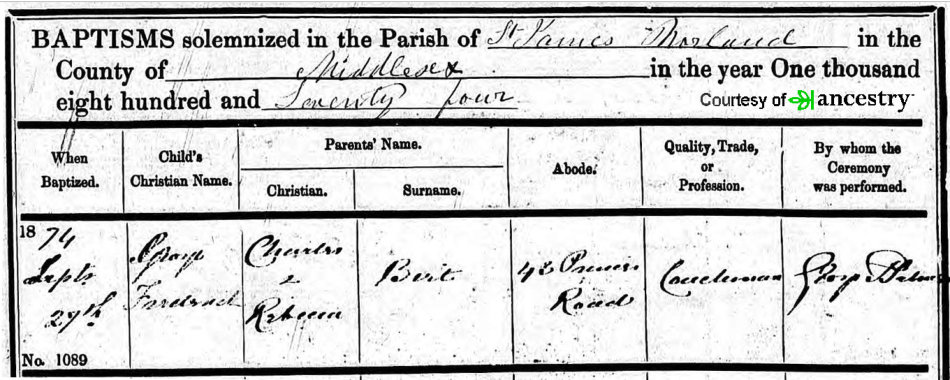 BAPTISMS solemnized in the Parish of St James Norland in the
County of Middlesex in the year One thousand
eight hundred and Seventy four
Courtesy of ancestry
When Baptized.
Child's Christian Name.
Parents' Name.
Christian.
Surname.
Abode.
Quality, Trade, or Profession.
By whom the Ceremony was performed.
1874
Septr
27th
George
Charles
&
Rebecca
Birt
42
Road
Coachman
George
No. 1089